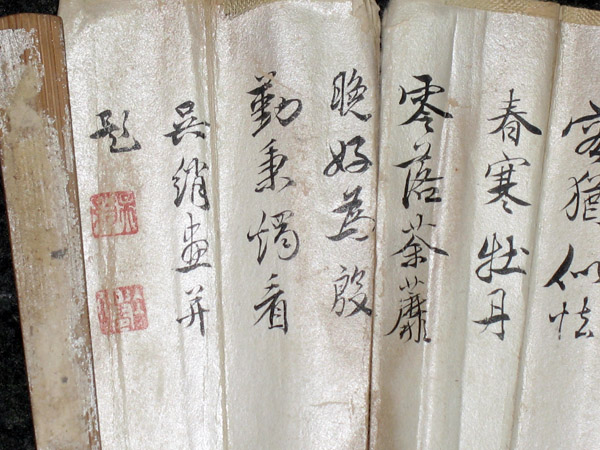 容猶似怯
春寒牡丹
零落荼蘼
晚好為殷
勤秉燭看
吳綃畫并
題